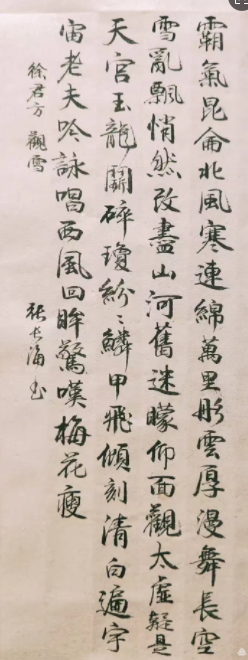 霸氣昆侖北風寒連綿萬里彤雲厚漫舞長空
雪亂飄悄然改盡山河舊迷矇仰面觀太虛疑是
天官玉龍鬪碎瓊紛々鱗甲飛傾刻清白遍宇
宙老夫吟詠唱西風回眸驚嘆梅花瘦
徐君方 觀雪
張長海書